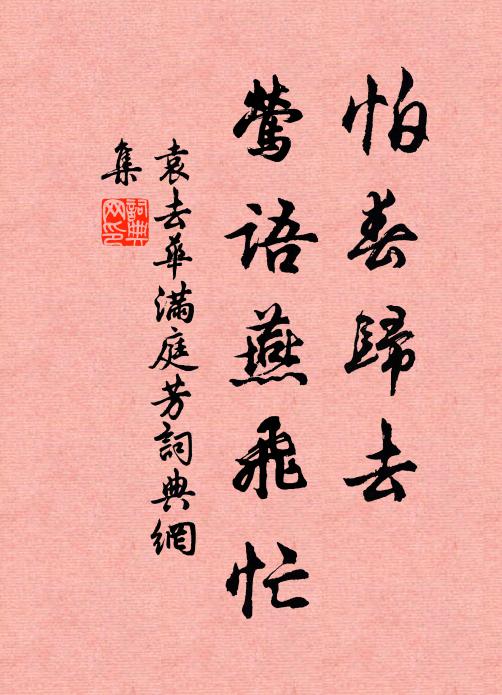 怕春歸去
鶯語燕飛忙
袁去華滿庭芳詞典網
集
詞典
网印